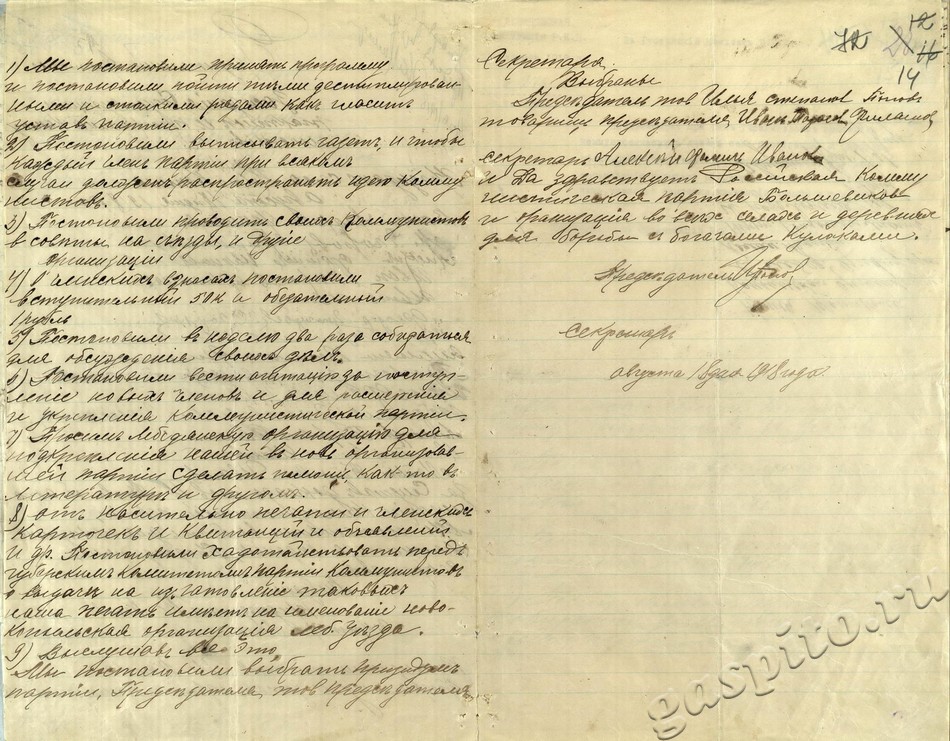 1) Мы постановили принять программу
и постановили пойти тѣми десцыплирован
ными и стойкими рядами какъ гласитъ
уставъ партіи.
2) Постановили выписывать газету, и чтобы
каждый членъ партіи при всякомъ
случаи долженъ распространять идею Комму
нистовъ.
3) Постановили проводить своихъ Коммунистовъ
в совѣты на съѣзды, и другіе
организаціи
4) О членскихъ взносахъ постановили
вступительный 50 к а обезательный
1 рубль
5) Постановили въ неделю два раза собираться
для обсужденія своихъ дѣлъ.
6) Постановили вести агитацію до поступ-
леніе новыхъ членовъ и для расшеренія
и укрепленія Коммунистической партіи.
7) Просимъ Лебедянскую организацію для
подкрепленія нашей в новь организовав-
шей партіи сделать помощь, как то въ
литературѣ и другомъ.
8) отъ насительно печати и членскихъ
карточекъ и квитанцій и объявленій
и др. Постановили хадотайствовать передъ
губерскимъ комитетомъ партіи Коммунистовъ
о выдачи на изготовленіе таковыхъ
наша печать имѣетъ на именованіе ново-
копыльская организація Леб. уѣзда.
9) Выслушавъ все это
Мы постановили выбрать президіумъ
партіи, Предсѣдателя, тов предсѣдателя
72 12
14
Секретаря.
Выбраны
Предсѣдатель тов Илья степанов Попов
товарищъ предсѣдателя, Иванъ
секретарь Алексѣй Ивановъ
и Да здравствуетъ Россійская Комму
нистическая партія Большевиков
и организація во всѣхъ селахъ и деревнях
для борьбы съ богачами Кулаками.
Предсѣдатель
секретарь
августа 18 дня 1918 года
gaspito.ru